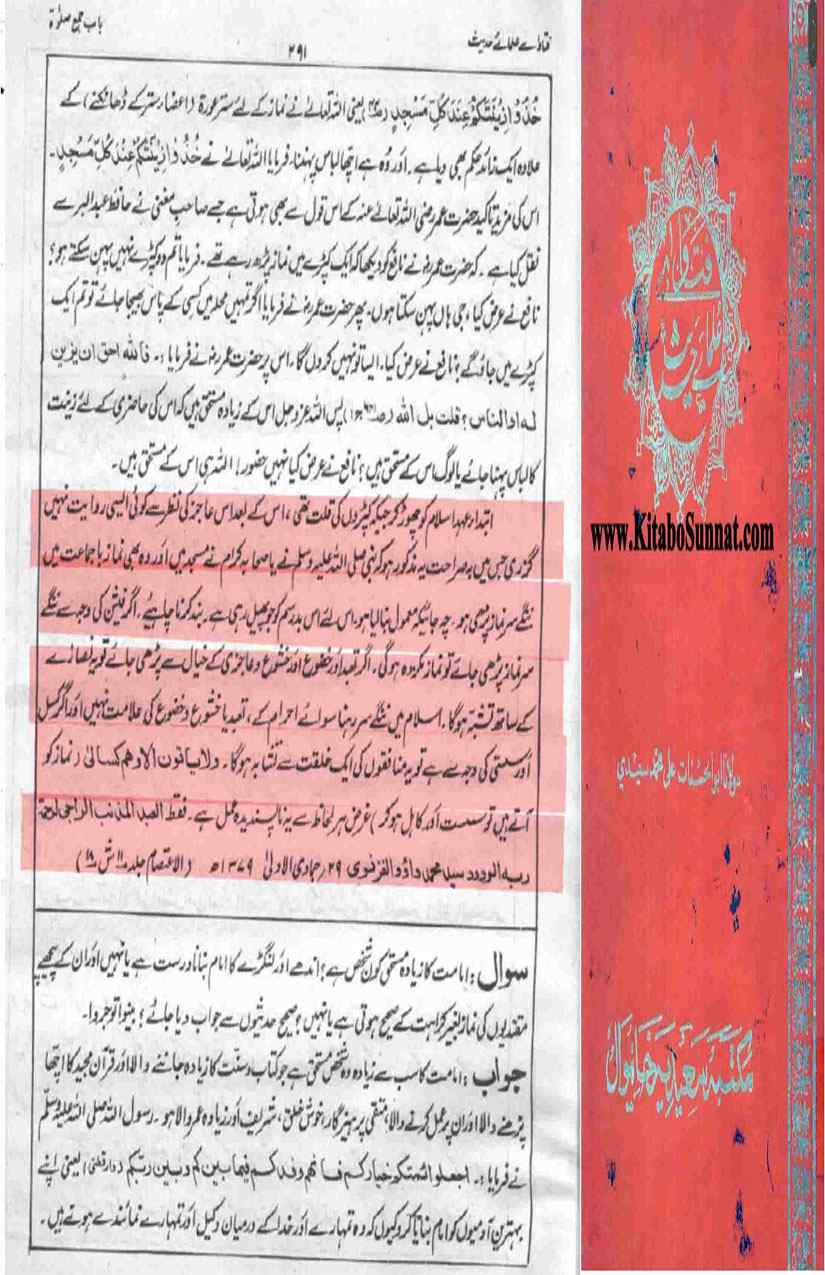 فتاوےٰ علمائے حدیث
۲۹۱
باب جمع صلوٰۃ
خُذُوا زِیْنَتَکُمْ عِنْدَ کُلِّ مَسْجِدٍ یعنی اللہ تعالےٰ نے نماز کے لئے ستر عورۃ (اعضاء ستر کے ڈھانکنے) کے
علاوہ ایک زائد حکم بھی دیا ہے۔ اور وہ ہے اچھا لباس پہننا، فرمایا اللہ تعالےٰ نے خُذُوا زِیْنَتَکُمْ عِنْدَ کُلِّ مَسْجِدٍ۔
اس کی مزید تاکید حضرت عمر رضی اللہ تعالےٰ عنہ کے اس قول سے بھی ہوتی ہے جسے صاحب مغنی نے حافظ عبدالبر سے
نقل کیا ہے۔ کہ حضرت عمرؓ نے نافع کو دیکھا کہ ایک کپڑے میں نماز پڑھ رہے تھے۔ فرمایا تم دو کپڑے نہیں پہن سکتے ہو؟
نافع نے عرض کیا، جی ہاں پہن سکتا ہوں۔ پھر حضرت عمرؓ نے فرمایا اگر تمہیں محلہ میں کسی کے پاس بھیجا جائے تو تم ایک
کپڑے میں جاؤ گے؟ نافع نے عرض کیا۔ ایسا تو نہیں کروں گا۔ اس پر حضرت عمرؓ نے فرمایا:۔ فاللہ احق ان یزین
لہ او الناس؟ قلت بل اللہ پس اللہ عزوجل اس کے زیادہ مستحق ہیں کہ اس کی حاضری کے لئے زینت
کا لباس پہنا جائے یا لوگ اس کے مستحق ہیں؟ نافع نے عرض کیا نہیں حضور! اللہ ہی اس کے مستحق ہیں۔
ابتداء عہد اسلام کو چھوڑ کر جبکہ کپڑوں کی قلت تھی، اس کے بعد اس عاجز کی نظر سے کوئی ایسی روایت نہیں
گزری جس میں بہ صراحت یہ مذکور ہو کہ نبی صلی اللہ علیہ وسلم نے یا صحابہ کرام نے مسجد میں اور وہ بھی نماز باجماعت میں
ننگے سر نماز پڑھی ہو، چہ جائیکہ معمول بنا لیا ہو۔ اس لئے اس بد رسم کو جو پھیل رہی ہے۔ بند کرنا چاہیے۔ اگر فیشن کی وجہ سے ننگے
سر نماز پڑھی جائے تو نماز مکروہ ہو گی۔ اگر تعبد اور خضوع اور خشوع و عاجزی کے خیال سے پڑھی جائے تو یہ نصاریٰ
کے ساتھ تشبہ ہو گا۔ اسلام میں ننگے سر رہنا سوائے احرام کے، تعبد یا خشوع و خضوع کی علامت نہیں اور اگر کسل
اور سستی کی وجہ سے ہے تو یہ منافقوں کی ایک خلقت سے تشابہ ہو گا۔ ولا یاتون الا وھم کسالیٰ (نماز کو
آتے ہیں تو سست اور کاہل ہو کر) غرض ہر لحاظ سے یہ ناپسندیدہ عمل ہے۔ فقط العبد المذنب الراجی لرحمۃ
ربہ الودود سید محمد داؤد الغزنوی ۲۹ جمادی الاولیٰ ۱۳۷۹ھ (الاعتصام جلد ۱۱ ش ۱۸)
سوال: امامت کا زیادہ مستحق کون شخص ہے؟ اندھے اور لنگڑے کا امام بنانا درست ہے یا نہیں اور ان کے پیچھے
مقتدیوں کی نماز بغیر کراہت کے صحیح ہوتی ہے یا نہیں؟ صحیح حدیثوں سے جواب دیا جائے؟ بینوا توجروا۔
جواب: امامت کا سب سے زیادہ وہ شخص مستحق ہے جو کتاب و سنت کا زیادہ جاننے والا اور قرآن مجید کا اچھا
پڑھنے والا اور ان پر عمل کرنے والا، متقی پرہیزگار، خوش خلق، شریف اور زیادہ عمر والا ہو۔ رسول اللہ صلی اللہ علیہ وسلم
نے فرمایا:۔ اجعلوا ائمتکم خیارکم فانھم وفدکم فیما بینکم وبین ربکم (دار قطنی) یعنی اپنے
بہترین آدمیوں کو امام بنایا کرو کیوں کہ وہ تمہارے اور خدا کے درمیان وکیل اور تمہارے نمائندے ہوتے ہیں۔
فتاویٰ
علمائے
حدیث
www.KitaboSunnat.com
مولانا ابوالحسنات علی محمد سعیدی
مکتبہ سعیدیہ خانیوال